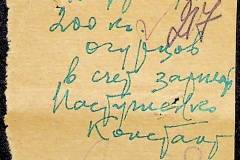 200 кг 217
огурцов
в счет зарпл
Пастушенко
Констант